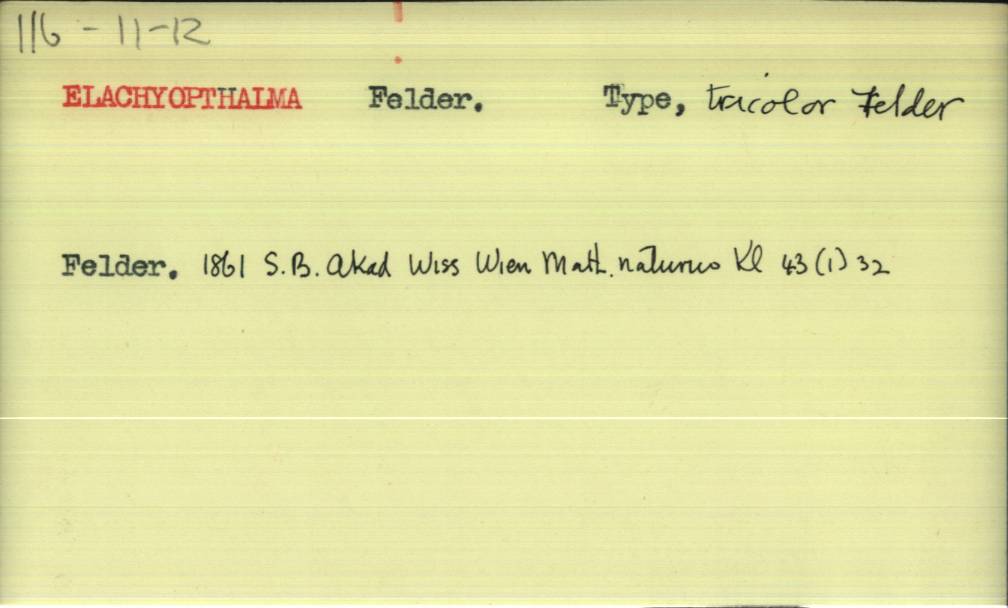 116-11-12
ELACHYOPTHALMA Felder. Type, tricolor Felder
Felder. 1861 S.B. Akad Wiss Wien Math. naturw Kl 43 (1) 32